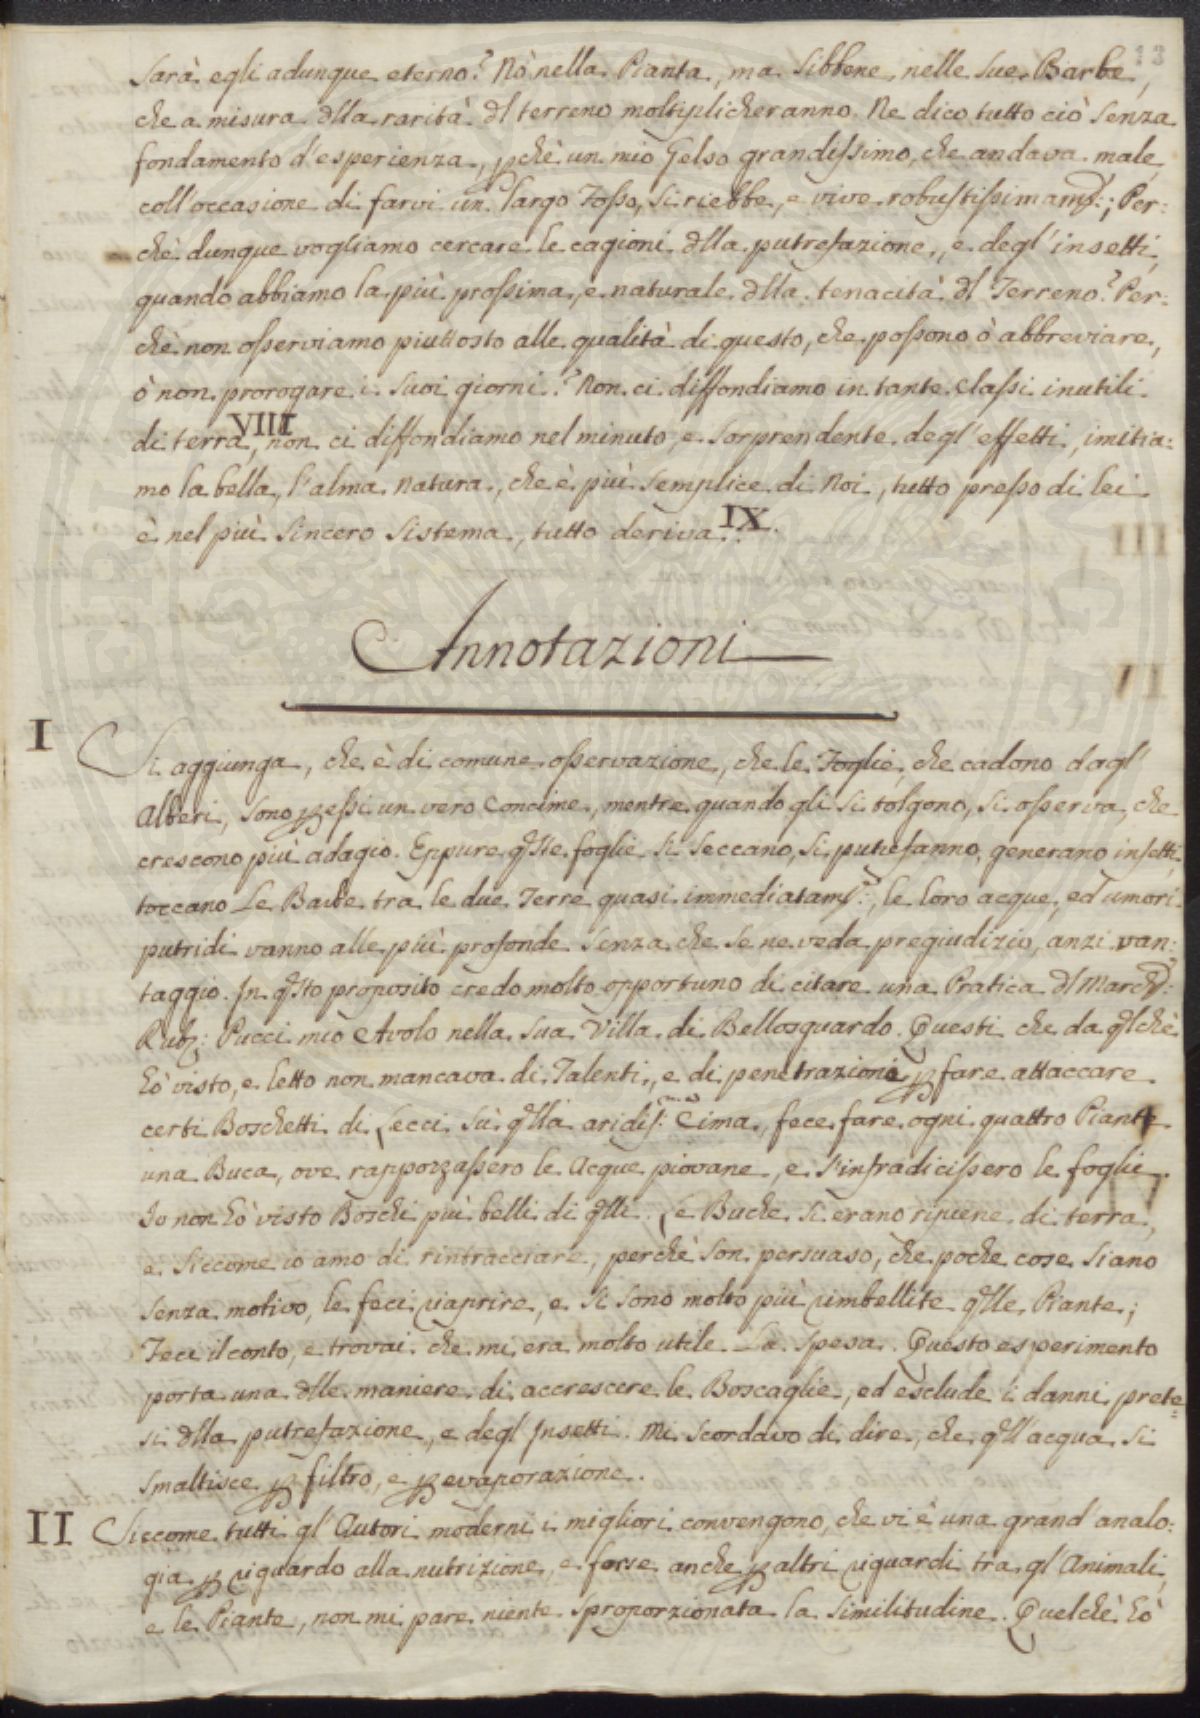 13
Sarà egli adunque eterno? Nò nella Pianta, ma Sibbene nelle Sue Barbe,
che a misura dlla rarità dl terreno moltiplicheranno. Ne dico tutto ciò Senza
fondamento d'esperienza, pchè un mio Gelso grandissimo, che andava male,
coll'occasione di farvi un largo Fosso, Si riebbe, e vive robustissimam.; Per:
chè dunque vogliamo cercare le cagioni dlla putrefazione, e degl'insetti,
quando abbiamo la più prossima, e naturale dlla tenacità dl Terreno? Per:
chè non osserviamo piuttosto alle qualità di questo, che possono ò abbreviare,
ò non prorogare i Suoi giorni? Non ci diffondiamo in tante Classi inutili
di terra VIII, non ci diffondiamo nel minuto, e Sorprendente degl'effetti, imitia:
mo la bella, l'alma Natura, che è più Semplice di Noi, tutto presso di lei
è nel più Sincero Sistema, tutto deriva IX.
Annotazioni
I Si aggiunga, che è di comune osservazione, che le Foglie, che cadono dagl'
Alberi, Sono p essi un vero Concime, mentre quando gli Si tolgono, Si osserva, che
crescono più adagio. Eppure qste foglie Si Seccano, Si putrefanno, generano insetti,
toccano Le Barbe tra le due Terre quasi immediatam., le loro acque, ed umori
putridi vanno alle più profonde Senza che Se ne veda pregiudizio, anzi van:
taggio. In qsto proposito credo molto opportuno di citare una Pratica dl March.:
Rub: Pucci mio Avolo nella Sua Villa di Bellosguardo. Questi che da qlchè
hò visto, e letto non mancava di Talenti, e di penetrazione p fare attaccare
certi Boschetti di Lecci Sù qlla aridis.ma Cima, fece fare ogni quattro Piante
una Buca, ove rappozzassero le Acque piovane, e S'infradicissero le foglie.
Io non hò visto Boschi più belli di qlli. Le Buche Si erano ripiene di terra,
e Siccome io amo di rintracciare, perchè Son persuaso, che poche cose Siano
Senza motivo, le feci riaprire, e Si Sono molto più rimbellite qlle Piante;
Feci il conto, e trovai che mi era molto utile La Spesa. Questo esperimento
porta una dlle maniere di accrescere le Boscaglie, ed esclude i danni prete:
si dlla putrefazione, e degl'Insetti. Mi Scordavo di dire, che qll'acqua Si
Smaltisce p filtro, e p evaporazione.
II Siccome tutti gl'Autori moderni i migliori convengono, che vi è una grand'analo:
gia p riguardo alla nutrizione, e forse anche p altri riguardi tra gl'Animali,
e le Piante, non mi pare niente Sproporzionata la Similitudine. Quelchè hò